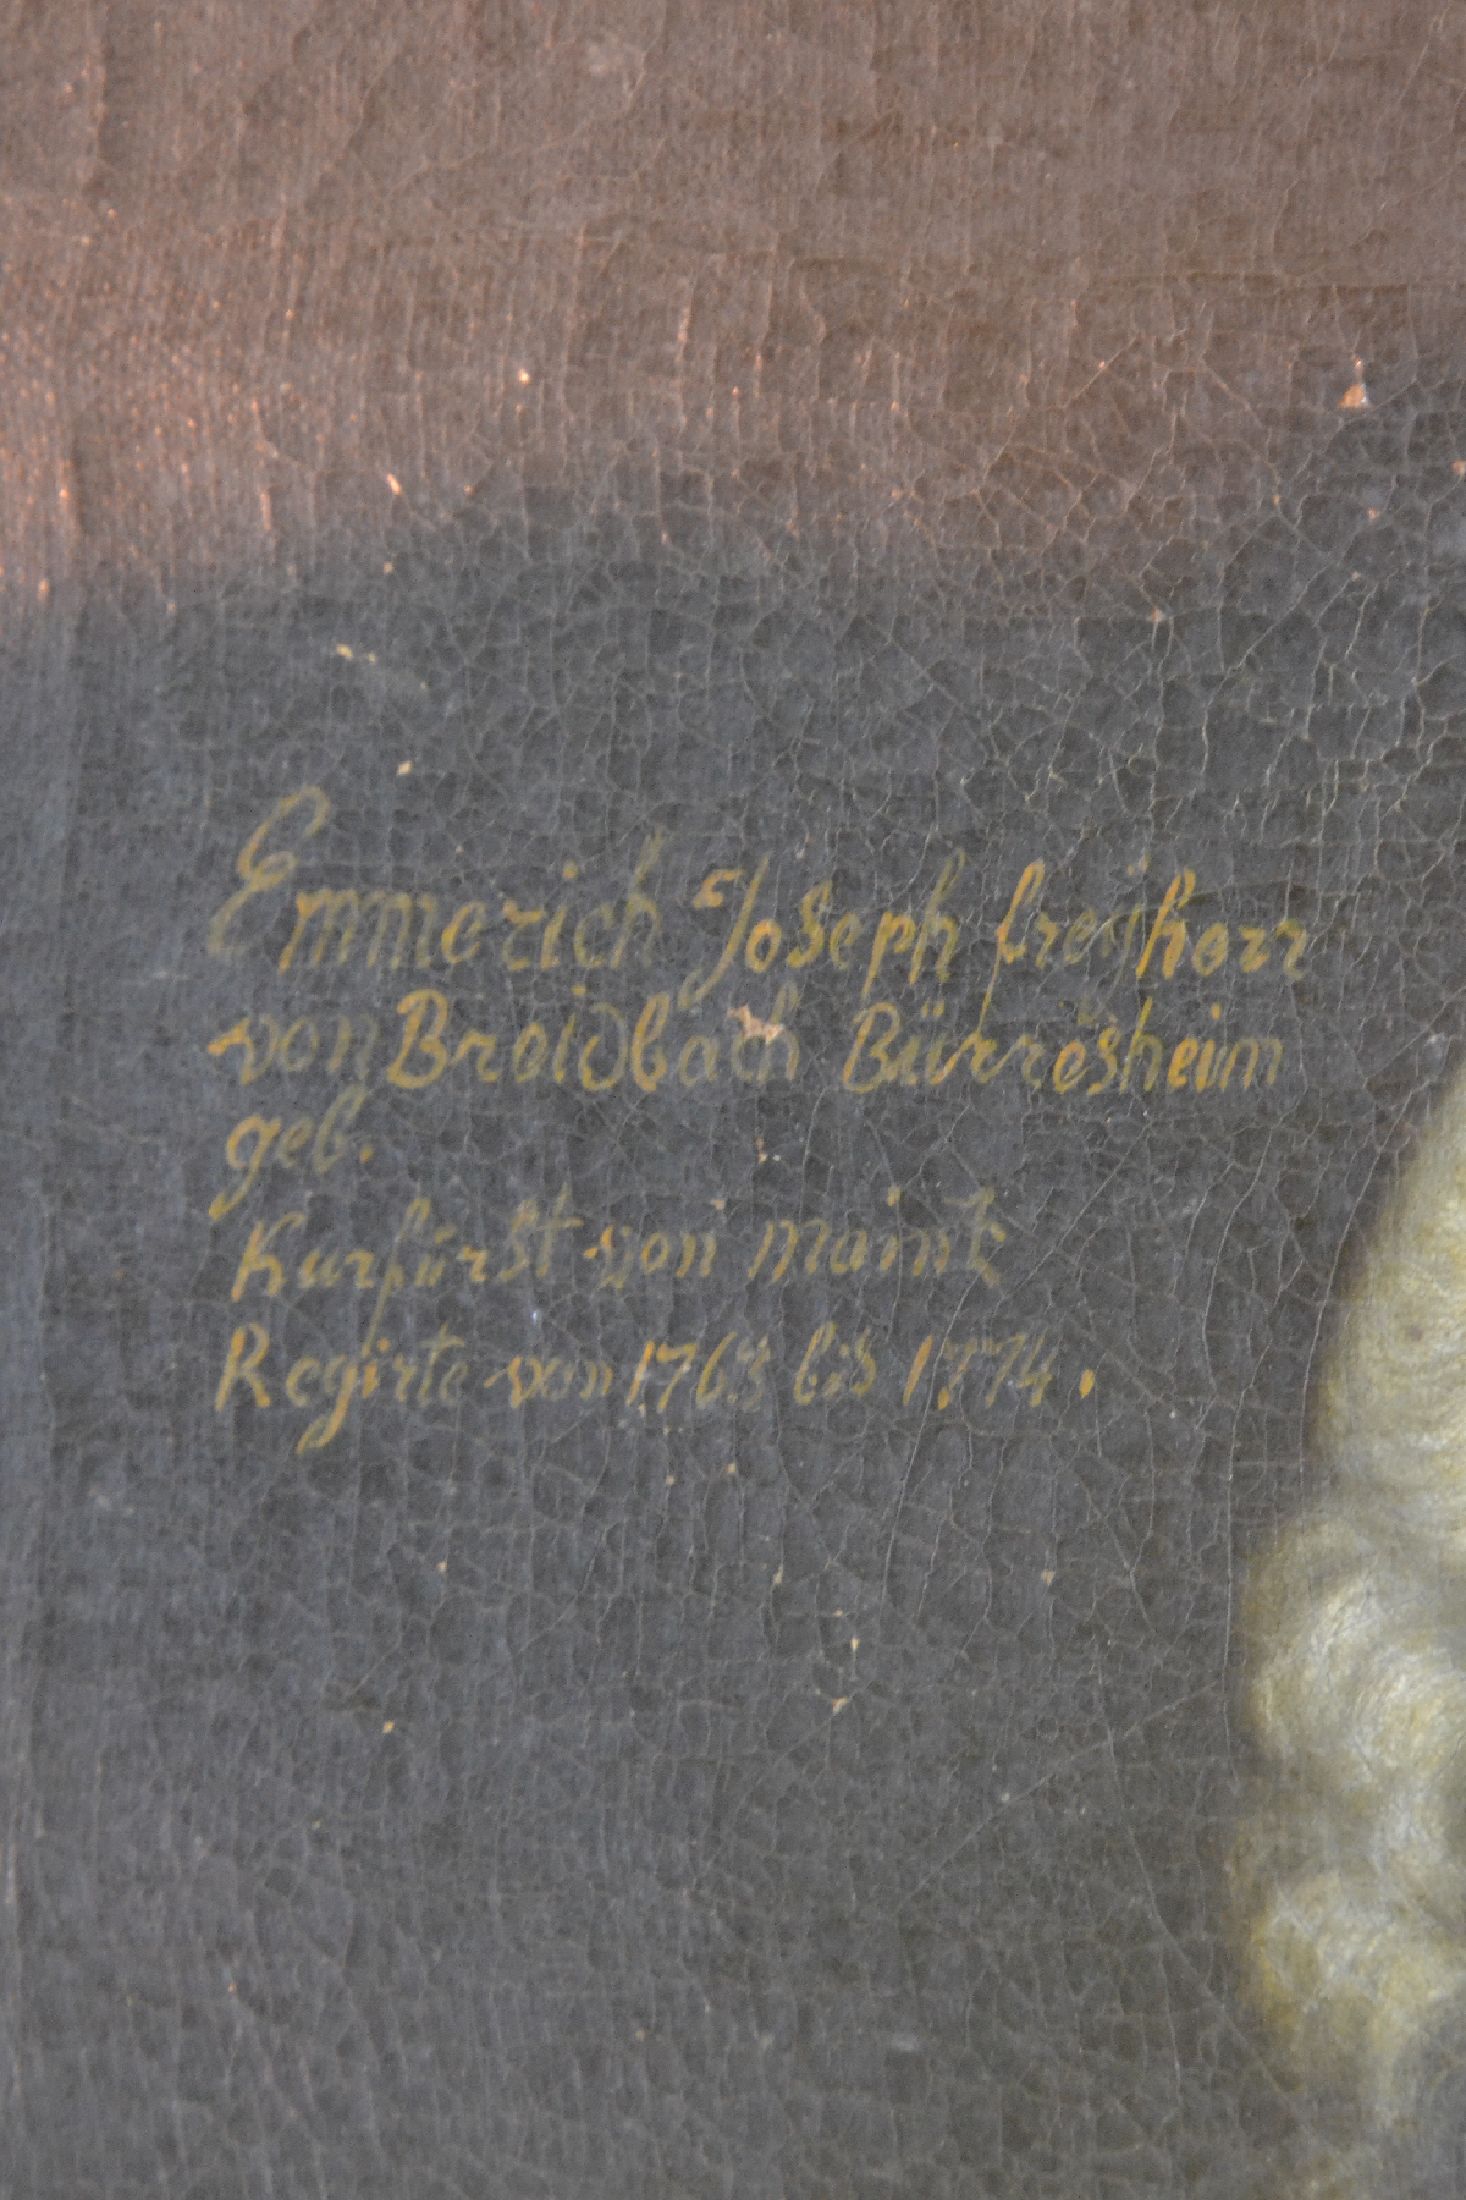 Emmerich Joseph freÿherr
von Breidbach Bürresheim
geb.
Kurfürst von Maintz
Regirte von 1763 bis 1774.